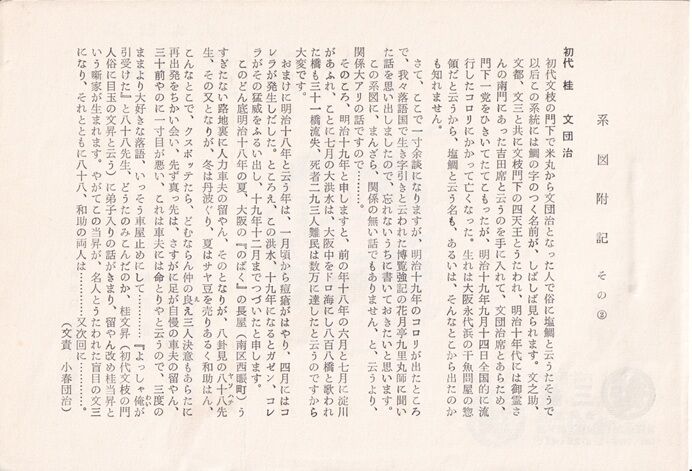 系図附記 その②
初代 桂 文団治
初代文枝の門下で米丸から文団治となった人で俗に塩鯛と云うたそうで
以后この系統には鯛の字のつく名前が、しばしば見られます。文之助、
文都、文三と共に文枝門下の四天王とうたわれ、明治十年代には御霊さ
んの南門にあった吉田席と云うのを手に入れて、文団治席とあらため、
門下一党をひきいてたてこもったが、明治十九年九月十四日全国的に流
行したコロリにかかって亡くなった。生れは大阪永代浜の干魚問屋の惣
領だと云うから、塩鯛と云う名も、あるいは、そんなとこから出たのか
も知れません。
さて、ここで一寸余談になりますが、明治十九年のコロリが出たところ
で、我々落語国で生き字引きと云われた博覧強記の花月亭九里丸師に聞い
た話を思い出しましたので、忘れないうちに書いておきたいと思います。
この系図に、まんざら、関係の無い話でもありません、と、云うより、
関係大アリの話ですので………。
そのころ、明治十九年と申しますと、前の年十八年の六月と七月に淀川
があふれ、ことに七月の大洪水は、大阪中をドロ海にし八百八橋と歌われ
た橋も三十一橋流失、死者二九三人難民は数万に達したと云うのですから
大変です。
おまけに明治十八年と云う年は、一月頃から痘瘡がはやり、四月にはコ
レラが発生しだした。ところえ、この洪水、十九年になるとガゼン、コレ
ラがその猛威をふるい出し、十九年十二月までつづいたと申します。
このどん底明治十八年の夏、大阪の『のばく』の長屋（南区西賑町）う
すぎたない路地裏に人力車夫の留やん、そのとなりが、八卦見の八十八先
ヤソハチ
生、その又となりが、冬は丹波ぐり、夏はサヤ豆を売りあるく和助はん、
こんなとこで、クスボッテたら、どむならん仲の良え三人決意もあらたに
再出発をちかい会い、先ず真っ先は、さすがに足が自慢の車夫の留やん、
三十前やのに一寸目が悪い、これは車夫には命とりやと云うので、三度の
ままより大好きな落語、いっそう車屋止めにして………『よっしゃ俺が
わい
引受けた』と八十八先生、どうたのみこんだのか、桂文昇（初代文枝の門
人俗に目玉の文昇と云う）に弟子入りの話がきまり、留やん改め桂当昇と
いう噺家が生まれます。やがてこの当昇が、名人とうたわれた盲目の文三
になり、それとともに八十八、和助の両人は………又次回に………。
（文責 小春団治）